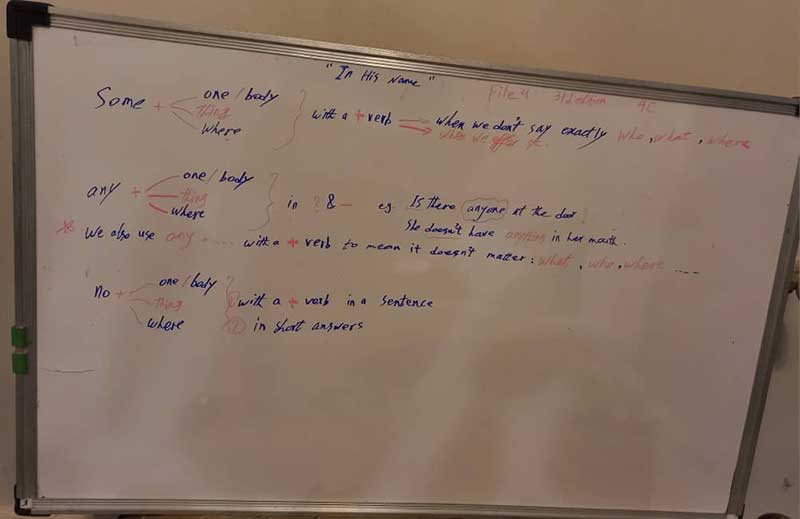 "In His Name"
File 4 3rd edition 4C
Some + one/body
thing
where
with a + verb when we don't say exactly who, what, where
when we offer sth.
any + one/body
thing
where
in ? & - e.g. Is there anyone at the door?
She doesn't have anything in her mouth.
* We also use any ..... with a + verb to mean it doesn't matter: what, who, where ....
no + one/body
thing
where
① with a + verb in a sentence
② in short answers